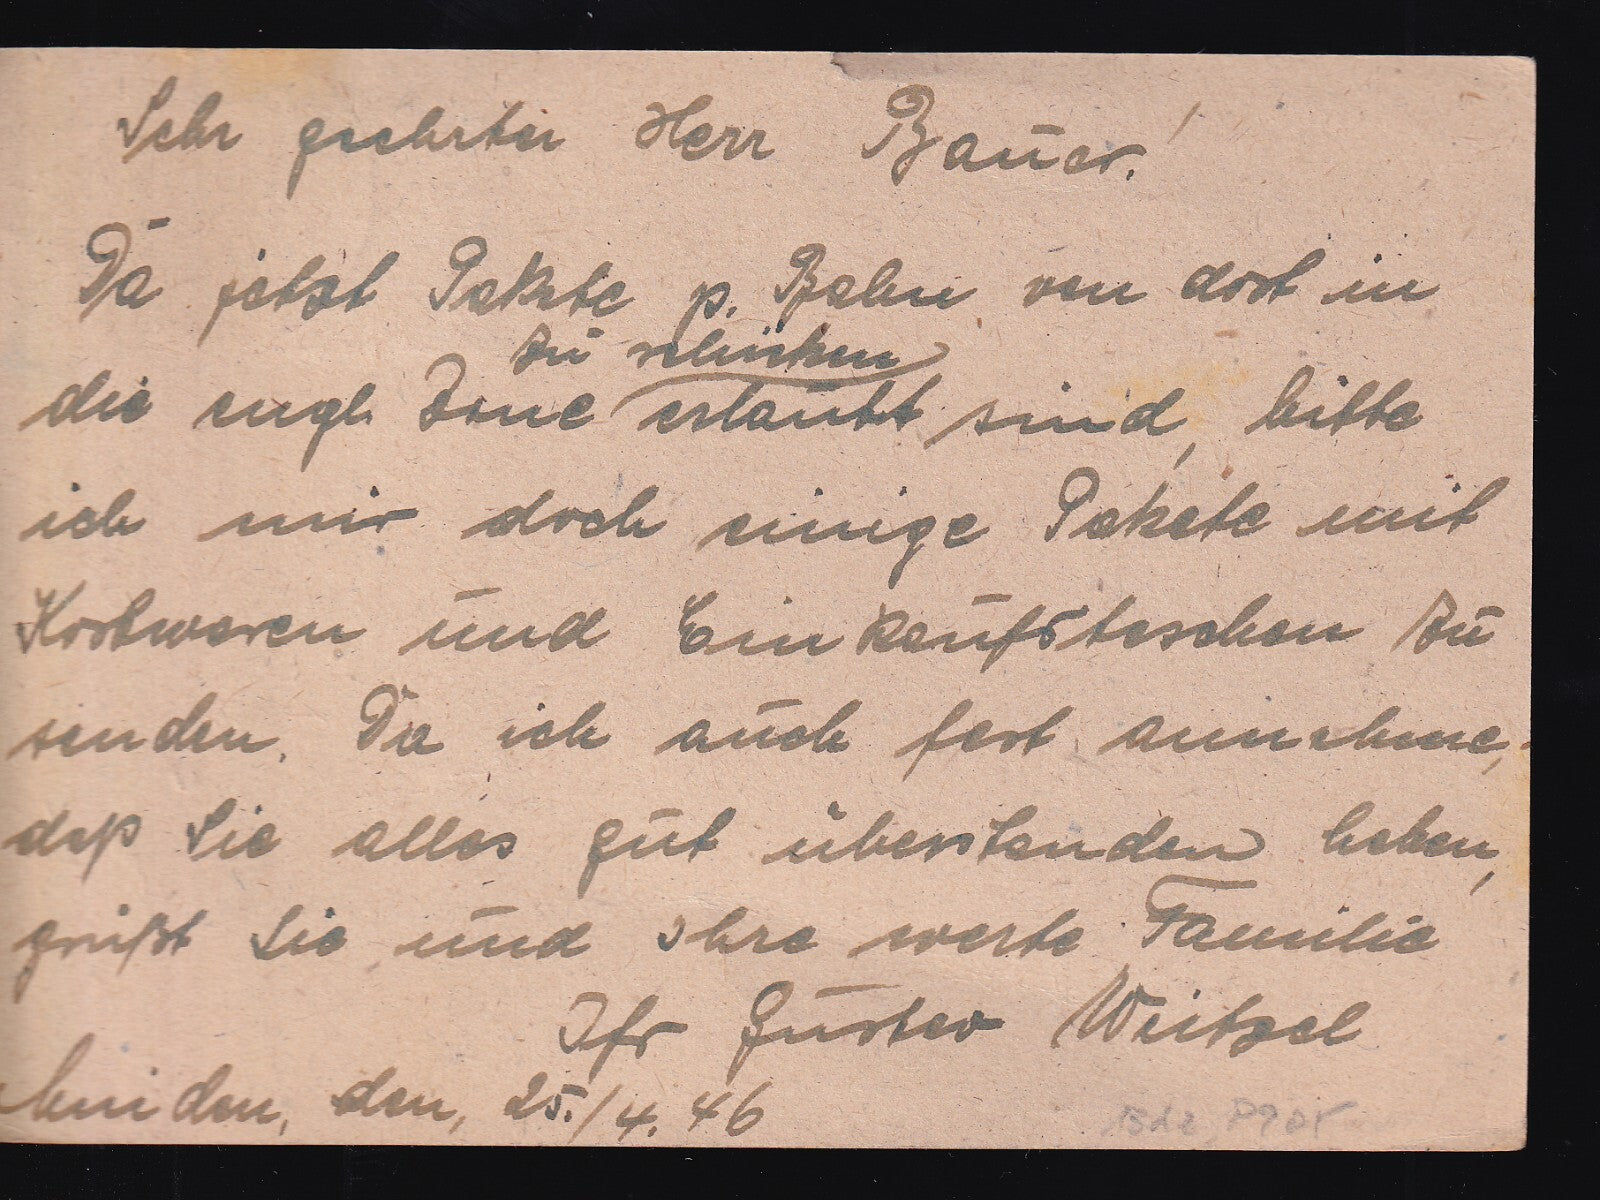 Sehr geehrter Herr Bauer!
Da jetzt Pakete p. Bahn von dort in
zu schicken
die engl. Zone erlaubt sind, bitte
ich mir doch einige Pakete mit
Korbwaren und Einkaufstaschen zu
senden. Da ich auch fest annehme,
daß Sie alles gut überstanden haben,
grüßt Sie und Ihre werte Familie
Ihr Gustav Weitzel
den, 25./4.46